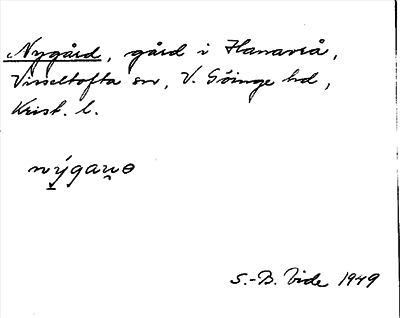 Nygård, gård i Hanaveå,
Visseltofta sn, V. Göinge hd,
Krist. l.
nýgaṷɵ
S.-B. Vide 1949